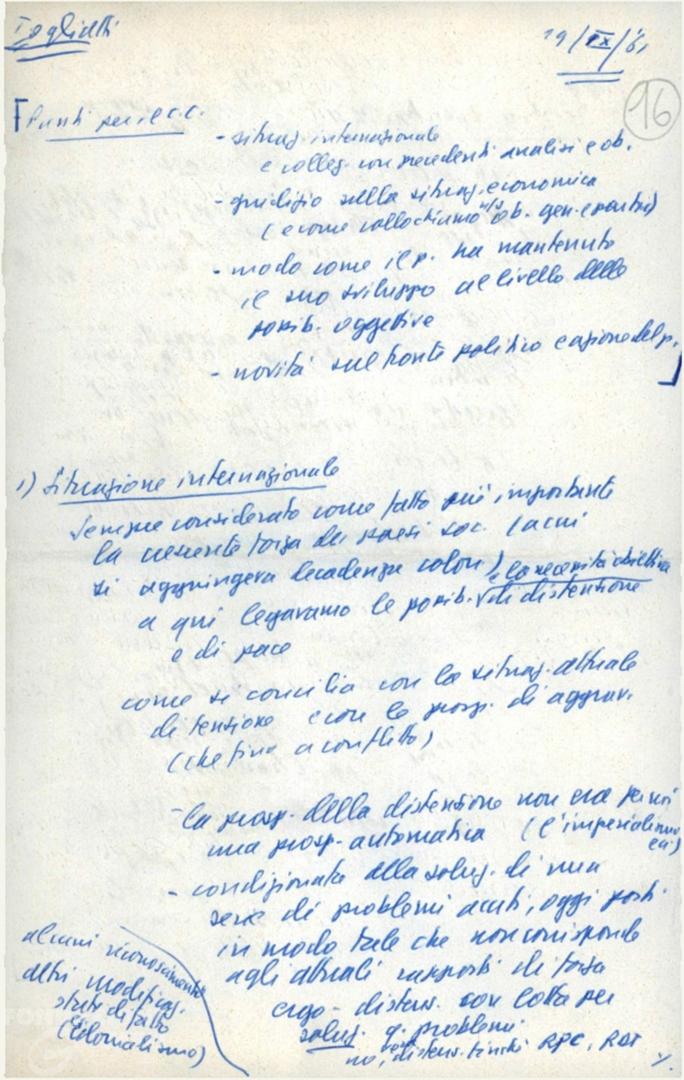 Togliatti
19/IX/61
16
Punti per il c.c.
- situaz. internazionale
e colleg. con precedenti analisi e ob.
- giudizio sulla situaz. economica
(e come collochiamo ns/ ob. gen. e partic.)
- modo come il p. ha mantenuto
il suo sviluppo al livello delle
possib. oggettive
- novità sul fronte politico e azione del p.
1) Situazione internazionale
sempre considerato come fatto più importante
la crescente forza dei paesi soc. (a cui
si aggiungeva decadenza colon.) e la necessità obiettiva
a qui legavamo le possib. di distensione
e di pace
come si concilia con la situaz. attuale
di tensione e con le prosp. di aggrav.
(che fino a conflitto)
- la prosp. della distensione non era per noi
una prosp. automatica (l'imperialismo
- condizionata alla soluz. di una
serie di problemi acuti, oggi posti
in modo tale che non corrisponde
agli attuali rapporti di forza
ergo - distens. con lotta per
soluz. q. problemi
no, distens. finché RPC, RDT
alcuni riconoscimento
altri modificaz.
stato di fatto
(colonialismo)